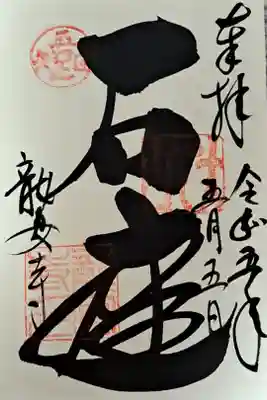 奉拝
令和五年
五月五日
石庭
龍安寺